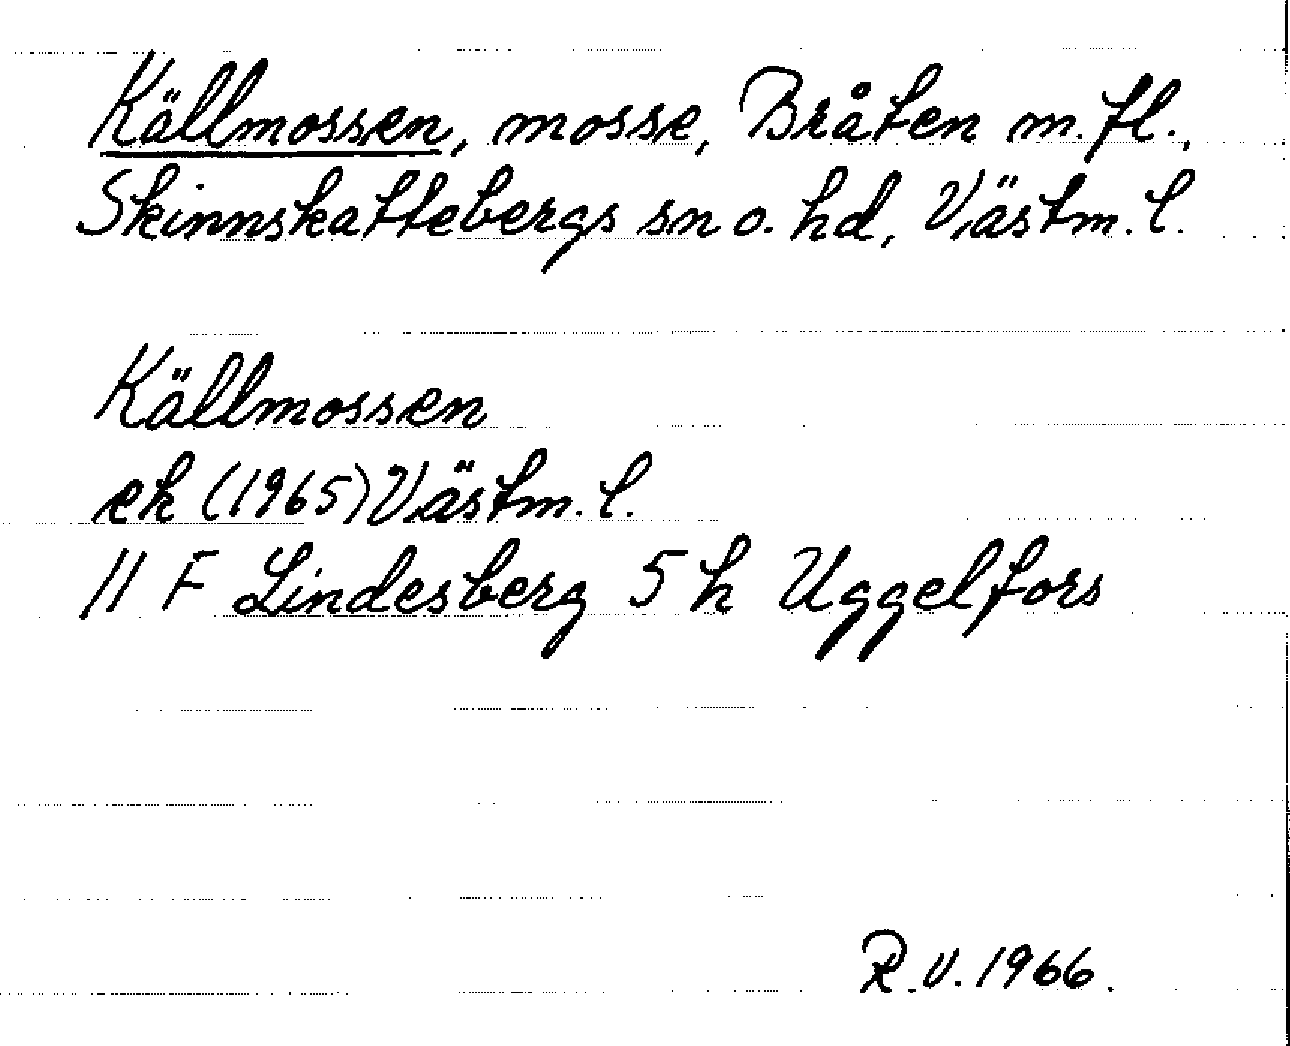 Källmossen, mosse, Bråten m.fl.,
Skinnskattebergs sn o. hd, Västm. l.
Källmossen
ek (1965) Västm. l.
11 F Lindesberg 5 h Uggelfors
R.V. 1966.